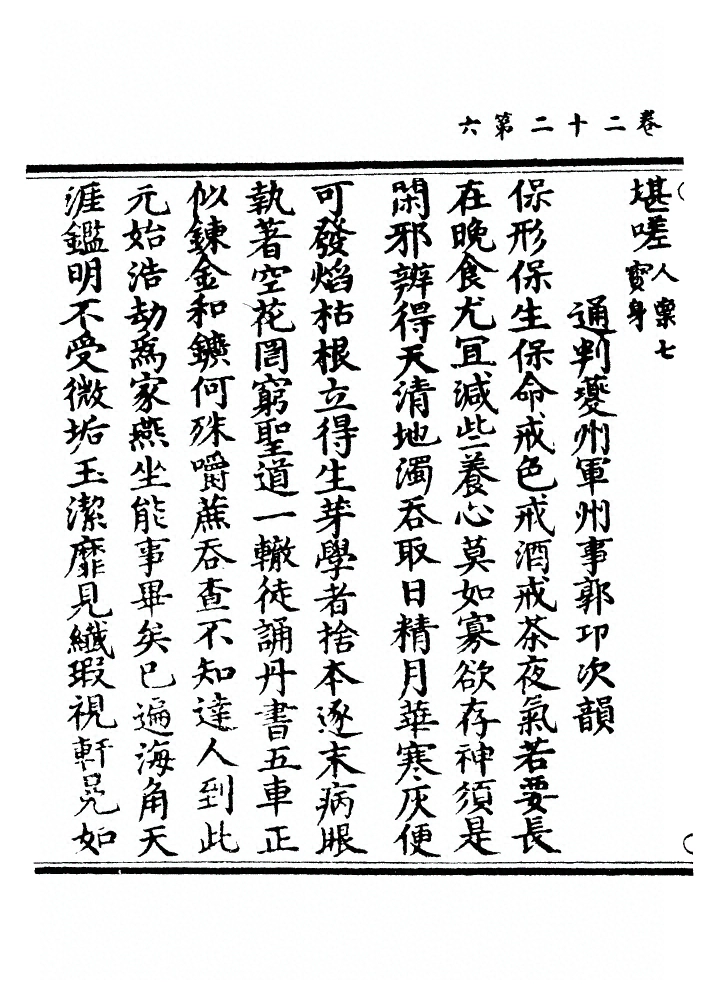 卷二十二第六
堪嗟人樂七寶身
通判夔州軍州事郭卭次韻
保形保生保命戒色戒酒戒茶夜氣若要長
在晚食尤宜減些養心莫如寡欲存神須是
閑邪辨得天清地濁吞取日精月華寒灰便
可發焰枯根立得生芽學者捨本逐末病眼
執著空花罔窮聖道一轍徒誦丹書五車正
似鍊金和鑛何殊嚼蔗吞查不知達人到此
元始浩劫為家燕坐能事畢矣已遍海角天
涯鑑明不受微垢玉潔靡見纖瑕視軒冕如